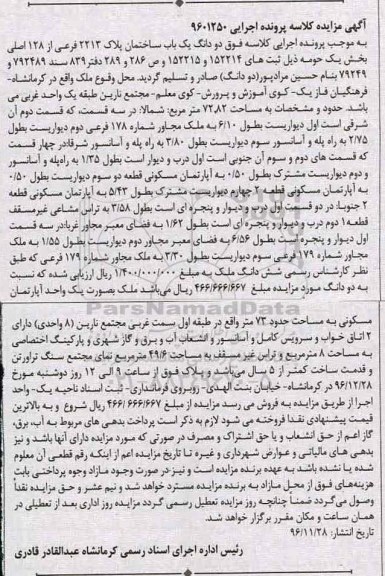 آگهی مزایده کلاسه پرونده اجرایی ۹۶۰۱۲۵۰
به موجب پرونده اجرایی کلاسه فوق دو دانگ یک باب ساختمان پلاک ۲۲۱۳ فرعی از ۱۲۸ اصلی
بخش یک حومه ذیل ثبت های ۱۵۲۲۱۴ و ۱۵۲۲۱۵ و ص ۲۸۶ و ۲۸۹ دفتر ۸۳۹ سند ۷۹۲۴۸۹ و
۷۹۲۴۹ بنام حسین مرادپور(دو دانگ) صادر و تسلیم گردید. محل وقوع ملک واقع در کرمانشاه-
فرهنگیان فاز یک- کوی آموزش و پرورش- کوی معلم- مجتمع نارین طبقه یک واحد غربی می
باشد. حدود و مشخصات به مساحت ۷۲,۸۲ متر مربع: شمالا: در سه قسمت، که قسمت دوم آن
شرقی است اول دیواریست بطول ۶/۱۰ به ملک مجاور شماره ۱۷۸ فرعی دوم دیواریست بطول
۲/۷۵ به راه پله و آسانسور سوم دیواریست بطول ۳/۸۰ به راه پله و آسانسور شرقا:در چهار قسمت
که قسمت های دوم و سوم آن جنوبی است اول درب و دیوار است بطول ۱/۳۵ به راه‌پله و آسانسور
و دوم دیواریست مشترک بطول ۰/۵۰ به آپارتمان مسکونی قطعه دو سوم دیواریست بطول ۰/۵۰
به آپارتمان مسکونی قطعه ۲ چهارم دیواریست مشترک بطول ۵/۴۳ به آپارتمان مسکونی قطعه
۲ جنوبا: در دو قسمت اول درب و دیوار و پنجره ای است بطول ۳/۵۸ به تراس مشاعی غیرمسقف
قطعه۱ دوم درب و دیوار و پنجره ای است بطول ۱/۶۲ به فضای معبر مجاور غربا:در سه قسمت
اول دیوار و پنجره است بطول ۶/۵۶ به فضای معبر مجاور دوم دیواریست بطول ۱/۵۵ به ملک
مجاور شماره ۱۷۹ فرعی سوم دیواریست بطول ۳/۳۰ به ملک مجاور شماره ۱۷۹ فرعی که طبق
نظر کارشناس رسمی شش دانگ ملک به مبلغ ۱/۴۰۰/۰۰۰/۰۰۰ ریال ارزیابی شده که نسبت
به دو دانگ مورد مزایده مبلغ ۴۶۶/۶۶۶/۶۶۷ ریال می‌باشد ملک بصورت یک واحد آپارتمان
مسکونی به مساحت حدود ۷۳ متر واقع در طبقه اول سمت غربی مجتمع نارین (۸ واحدی) دارای
۲ اتاق خواب و سرویس کامل و آسانسور و انشعاب آب و برق و گاز شهری و پارکینگ اختصاصی
به مساحت ۸ مترمربع و تراس غیر مسقف به مساحت ۴۹/۶ مترمربع نمای مجتمع سنگ تراورتن
و قدمت ساخت کمتر از ۵ سال می‌باشد و پلاک فوق از ساعت ۹ الی ۱۲ روز دوشنبه مورخ
۹۶/۱۲/۲۸ در کرمانشاه- خیابان بنت الهدی- روبروی فرمانداری- ثبت اسناد ناحیه یک- واحد
اجرا از طریق مزایده به فروش می رسد مزایده از مبلغ ۴۶۶/۶۶۶/۶۶۷ ریال شروع و به بالاترین
قیمت پیشنهادی نقدا فروخته می شود لازم به ذکر است پرداخت بدهی های مربوط به آب، برق،
گاز اعم از حق انشعاب و یا حق اشتراک و مصرف در صورتی که مورد مزایده دارای آنها باشد و نیز
بدهی های مالیاتی و عوارض شهرداری و غیره تا تاریخ مزایده اعم از اینکه رقم قطعی آن معلوم
شده یا نشده باشد به عهده برنده مزایده است و نیز در صورت وجود مازاد وجوه پرداختی بابت
هزینه‌های فوق از محل مازاد به برنده مزایده مسترد خواهد شد و نیم عشر و حق مزایده نقداً
وصول می‌گردد ضمناً چنانچه روز مزایده تعطیل رسمی گردد مزایده روز اداری بعد از تعطیلی در
همان ساعت و مکان مقرر برگزار خواهد شد.
تاریخ انتشار: ۹۶/۱۱/۲۸
رئیس اداره اجرای اسناد رسمی کرمانشاه عبدالقادر قادری
ParsNamadData